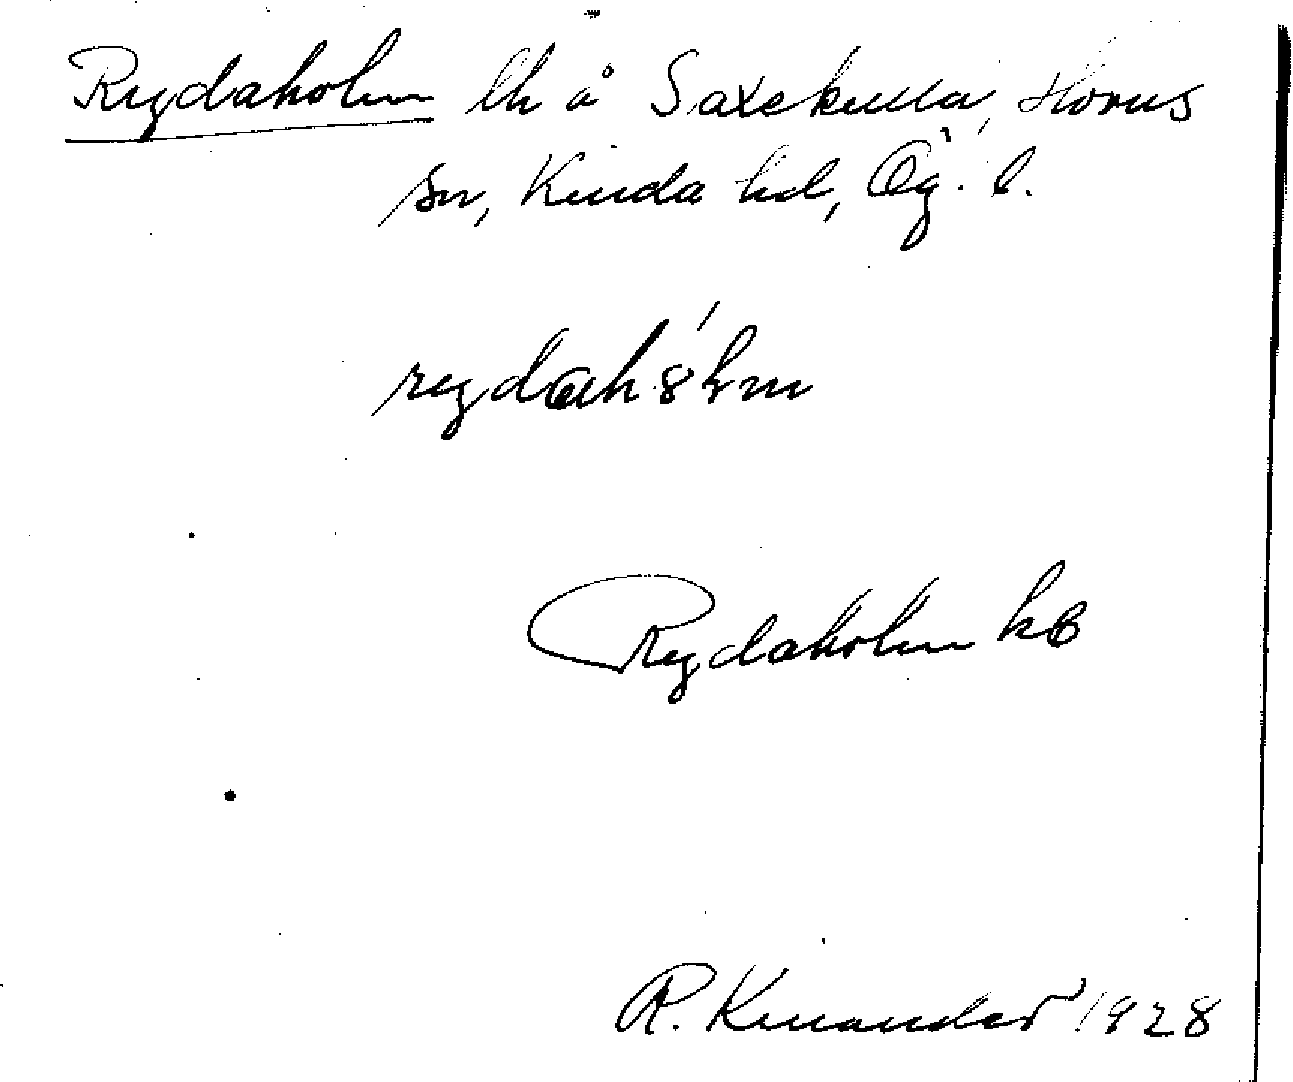 Rydaholm lh å Saxekulla, Horns
sn, Kinda hd, Ög. l.
rydah8lm
Rydaholm kb
R. Kinander 1928